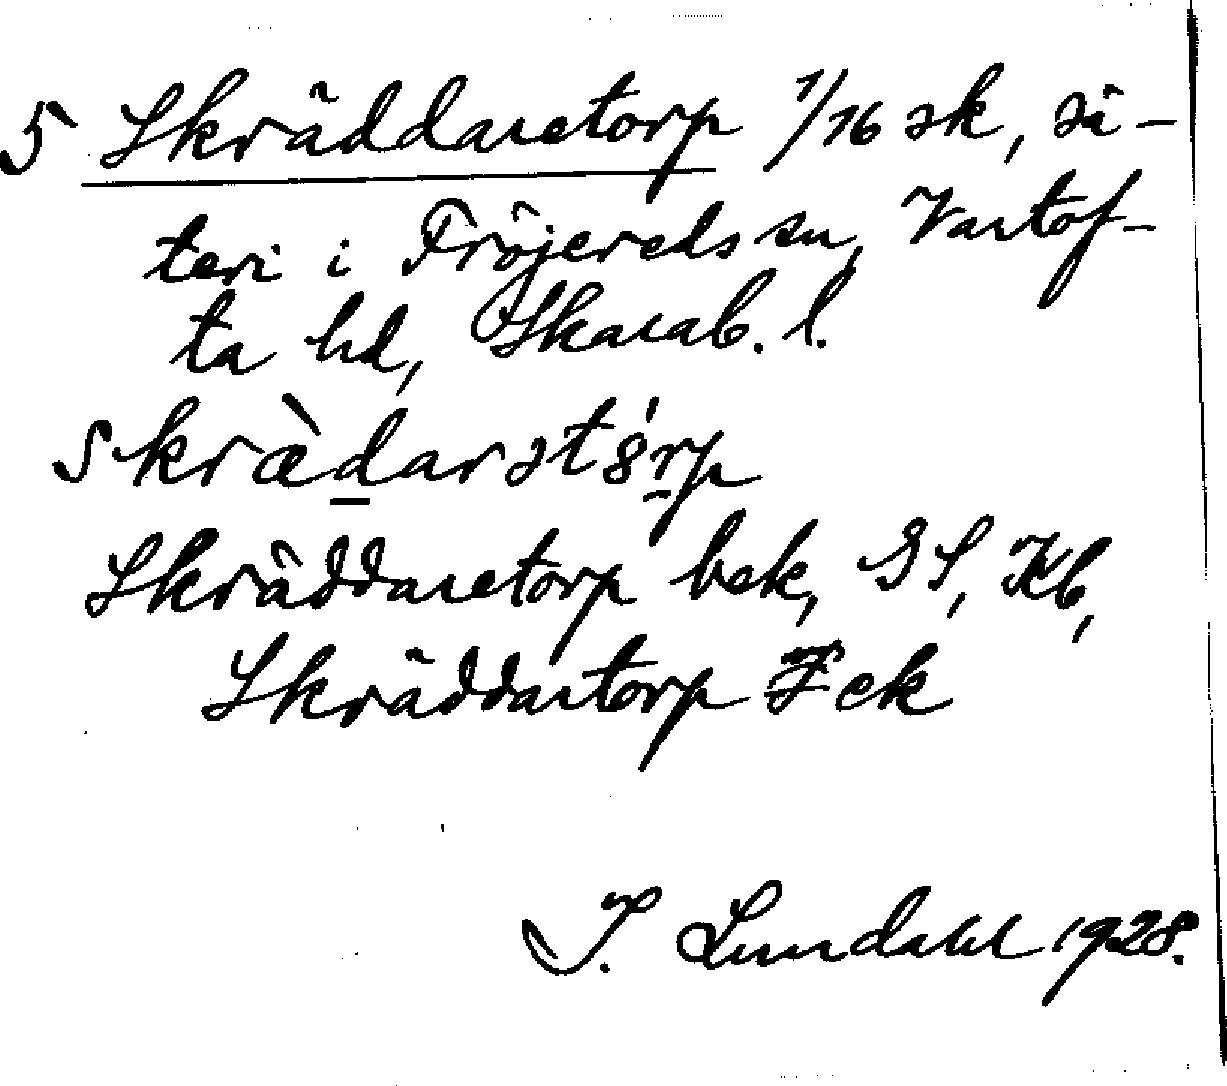 5 Skräddaretorp 1/16 sk, sä-
teri i Fröjereds sn, Vartof-
ta hd, Skarab. l.
skræ̀darstórp
Skräddaretorp bek, GS, Kb,
Skräddartorp Fek
I. Lundahl 1928.